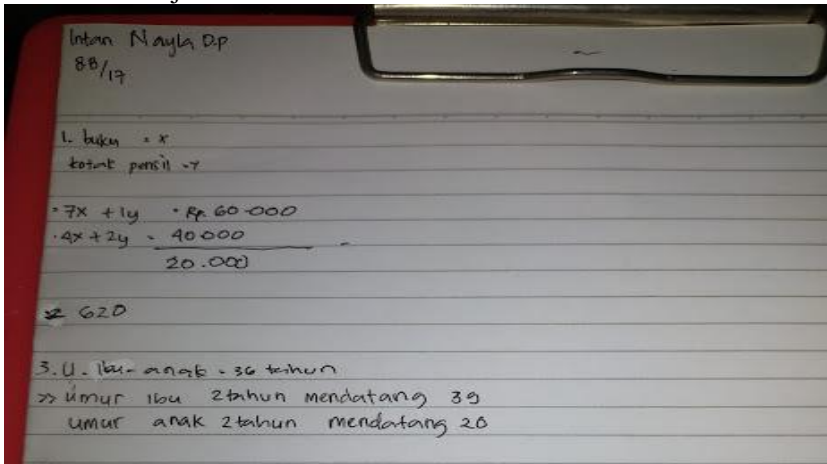 Intan Nayla D.P
8B/17
1. buku = x
kotak pensil = y
= 7x + 1y = Rp. 60.000
= 4x + 2y = 40.000 -
20.000
2 620
3. U. Ibu - anak = 36 tahun
>> Umur ibu 2 tahun mendatang 39
umur anak 2 tahun mendatang 20